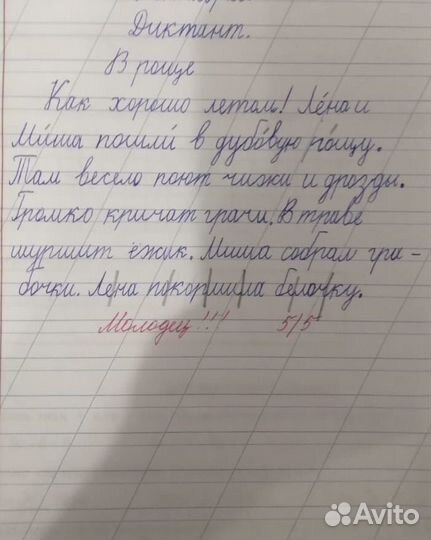 Диктант.
В роще
Как хорошо летом! Лена и
Миша пошли в дубовую рощу.
Там весело поют чижи и дрозды.
Громко кричат грачи. В траве
шуршит ёжик. Миша собрал гри-
бочки. Лена покормила белочку.
Молодец!!! 5/5
Avito